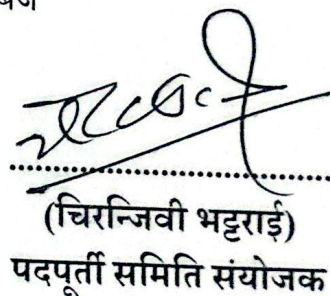 (चिरन्जिवी भट्टराई)
पदपूर्ती समिति संयोजक